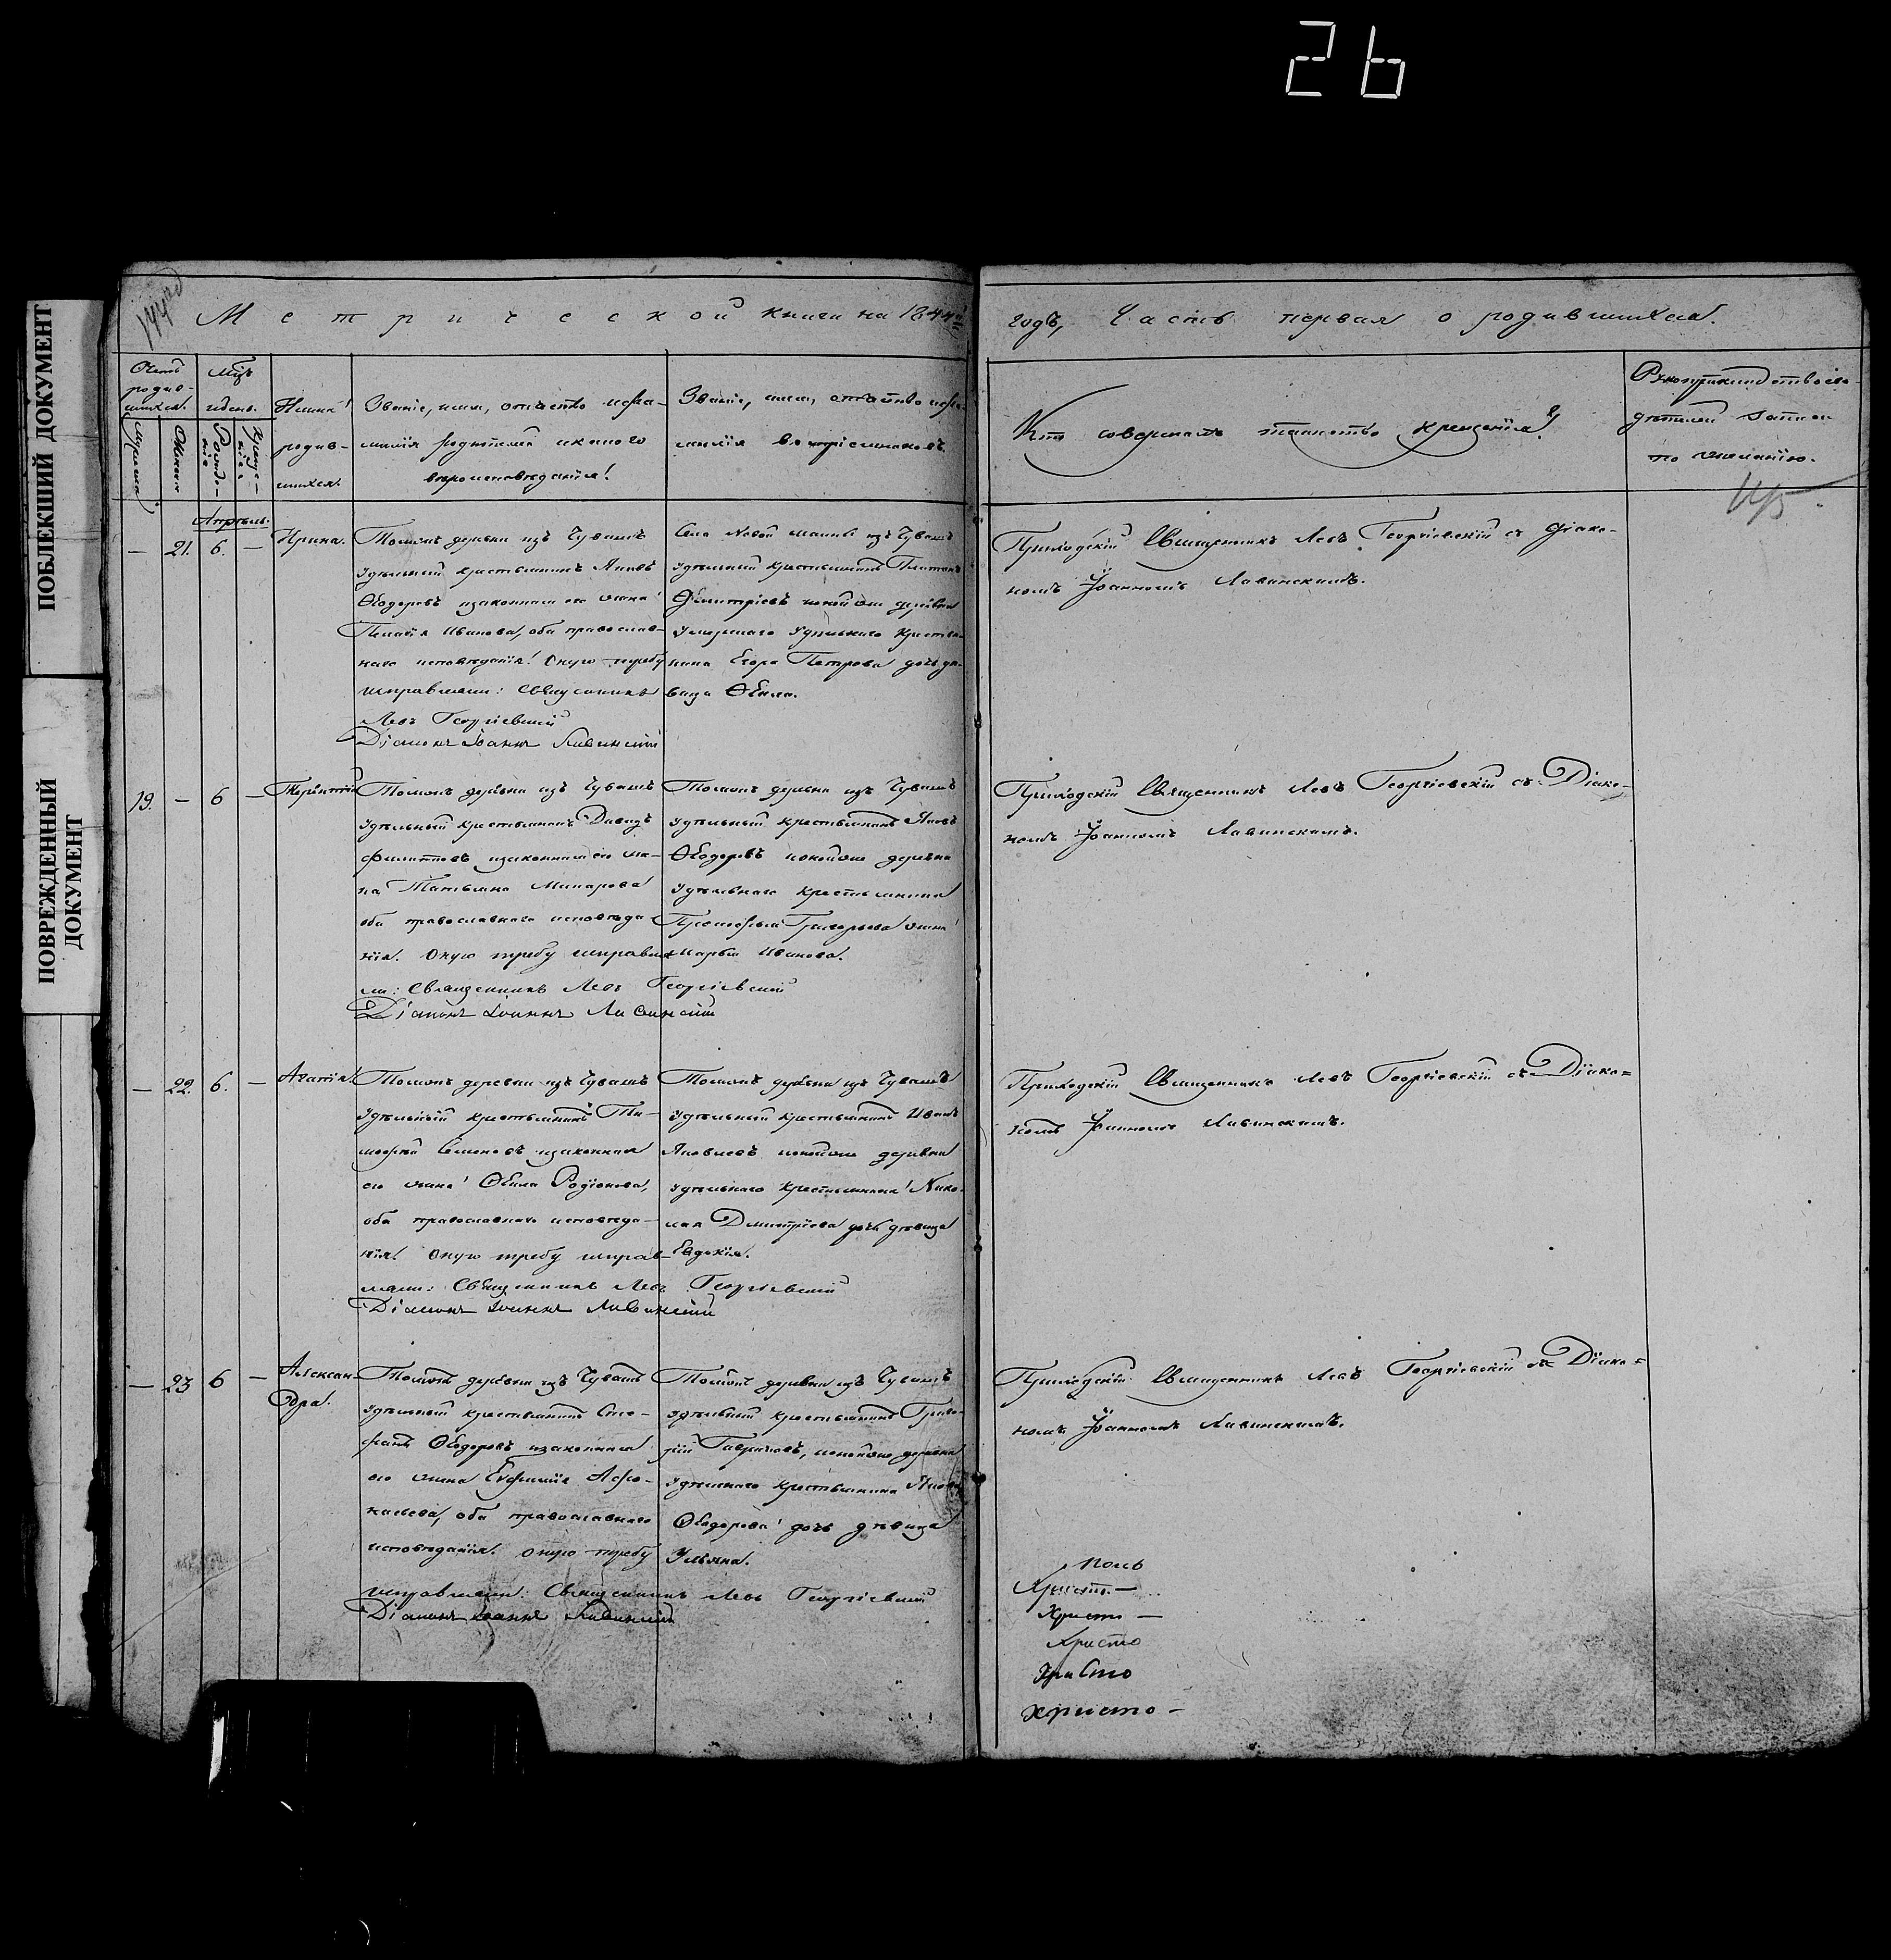 26
ПОБЛЕКШИЙ ДОКУМЕНТ
ПОВРЕЖДЕННЫЙ
ДОКУМЕНТ
Метрической книги на 1844й
годъ, Часть первая о родившихся.
Счетъ
родив-
шихся.
Мужеска
Женска
Мѣс.
и день.
Рожде-
нія
Креще-
нія
Имена
родив-
шихся.
Званіе, имя, отчество и фа-
милія родителей и какого
вѣроисповѣданія
Званіе, имя, отчество и фа-
милія воспріемниковъ.
Кто совершалъ таинство крещенія?
Рукоприкладство сви-
дѣтелей записи
по желанію.
Апрѣль.
— 21. 6. — Ирина.
деревни изъ Чувашъ
удѣльный крестьянинъ Яковъ
Ѳеодоровъ и законная его жена
Иванова, оба православ-
наго исповѣданія. Оную требу
исправляли: Священникъ
Левъ Георгіевскій
Діаконъ Іоаннъ Лавинскій
Села изъ Чувашъ
удѣльный крестьянинъ Платонъ
Димитріевъ и деревни
умершаго удѣльнаго крестья-
нина Егора Петрова дочь дѣ-
вица Ѳекла.
Приходскій Священникъ Левъ Георгіевскій съ Діако-
номъ Іоанномъ Лавинскимъ.
19. — 6 — Терентій
деревни изъ Чувашъ
удѣльный крестьянинъ Давидъ
Филипповъ и законная его же-
на Татьяна Макарова
оба православнаго исповѣда-
нія. Оную требу исправля-
ли: Священникъ Левъ Георгіевскій
Діаконъ Іоаннъ Лавинскій
деревни изъ Чувашъ
удѣльный крестьянинъ Яковъ
Ѳеодоровъ и деревни
удѣльнаго крестьянина
Григорьева жена
Марья Иванова.
Приходскій Священникъ Левъ Георгіевскій съ Діако-
номъ Іоанномъ Лавинскимъ.
— 22. 6. — Агапія
деревни изъ Чувашъ
удѣльный крестьянинъ Ти-
мофей Семеновъ и законная
его жена Ѳекла Родіонова,
оба православнаго исповѣда-
нія. Оную требу исправ-
ляли: Священникъ Левъ Георгіевскій
Діаконъ Іоаннъ Лавинскій
деревни изъ Чувашъ
удѣльный крестьянинъ Иванъ
Яковлевъ и деревни
удѣльнаго крестьянина Нико-
лая Дмитріева дочь дѣвица
Евдокія.
Приходскій Священникъ Левъ Георгіевскій съ Діако=
номъ Іоанномъ Лавинскимъ.
— 23 6 — Алексан-
дра.
деревни изъ Чувашъ
удѣльный крестьянинъ Сте-
фанъ Ѳеодоровъ и законная
его жена Евфимія Афо-
насьева, оба православнаго
исповѣданія. Оную требу
исправляли: Священникъ Левъ Георгіевскій
Діаконъ Іоаннъ Лавинскій
деревни изъ Чувашъ
удѣльный крестьянинъ Григо-
рій Гавриловъ, и деревни
удѣльнаго крестьянина Якова
Ѳеодорова дочь дѣвица
Ульяна.
Приходскій Священникъ Левъ Георгіевскій съ Діако=
номъ Іоанномъ Лавинскимъ.
Христ. —
Христо —
Христо
Христо
Христо —